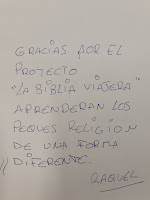 GRACIAS POR EL
PROYECTO
"LA BIBLIA VIAJERA"
APRENDERAN LOS
PEQUES RELIGION
DE UNA FORMA
DIFERENTE.
RAQUEL